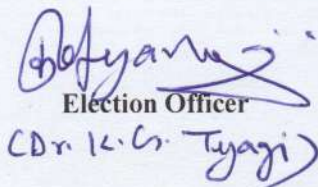 Election Officer
(Dr. K. G. Tyagi)